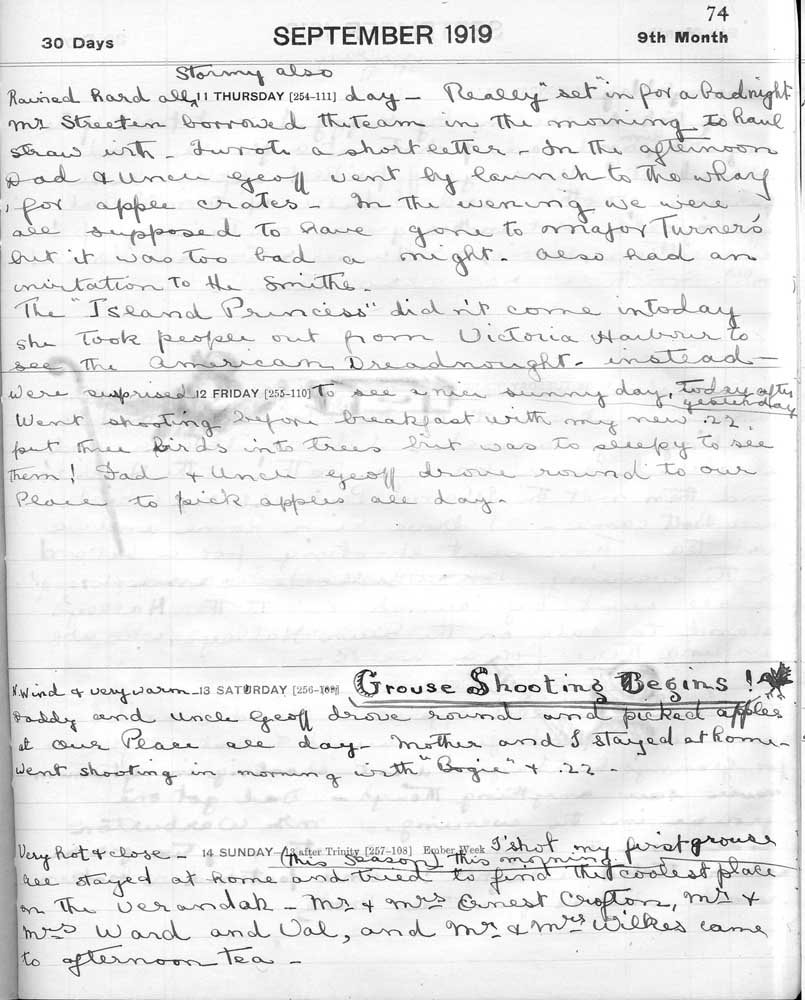 74
30 Days SEPTEMBER 1919 9th Month
Stormy also
Rained hard all 11 THURSDAY [254-111] day – Really "set" in for a bad night
Mr Streeten borrowed the team in the morning to haul
straw with – I wrote a short letter – In the afternoon
Dad & Uncle Geoff went by launch to the wharf
for apple crates – In the evening we were
all supposed to have gone to Major Turner's
but it was too bad a night. Also had an
invitation to the Smiths.
The "Island Princess" didn't come in today
she took people out from Victoria Harbour to
see the American Dreadnought – instead –
Were surprised 12 FRIDAY [255-110] To see a nice sunny day, today after
yesterday
Went shooting before breakfast with my new .22,
put three birds into trees but was to sleepy to see
them! Dad & Uncle Geoff drove round to our
Place to pick apples all day.
N. Wind & very warm – 13 SATURDAY [256-109] Grouse Shooting Begins!
Daddy and Uncle Geoff drove round and picked apples
at our Place all day – Mother and I stayed at home –
Went shooting in morning with "Bogie" & .22 –
Very hot & close – 14 SUNDAY – 13 after Trinity [257-108] Ember Week I shot my first grouse
(this season) this morning.
All stayed at home and tried to find the coolest place
on the verandah – Mr & Mrs Ernest Crofton, Mr &
Mrs Ward and Val, and Mr & Mrs Wilkes came
to afternoon tea –